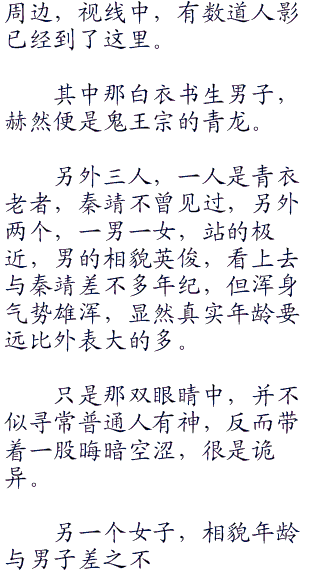 周边，视线中，有数道人影
已经到了这里。
其中那白衣书生男子，
赫然便是鬼王宗的青龙。
另外三人，一人是青衣
老者，秦靖不曾见过，另外
两个，一男一女，站的极
近，男的相貌英俊，看上去
与秦靖差不多年纪，但浑身
气势雄浑，显然真实年龄要
远比外表大的多。
只是那双眼睛中，并不
似寻常普通人有神，反而带
着一股晦暗空涩，很是诡
异。
另一个女子，相貌年龄
与男子差之不